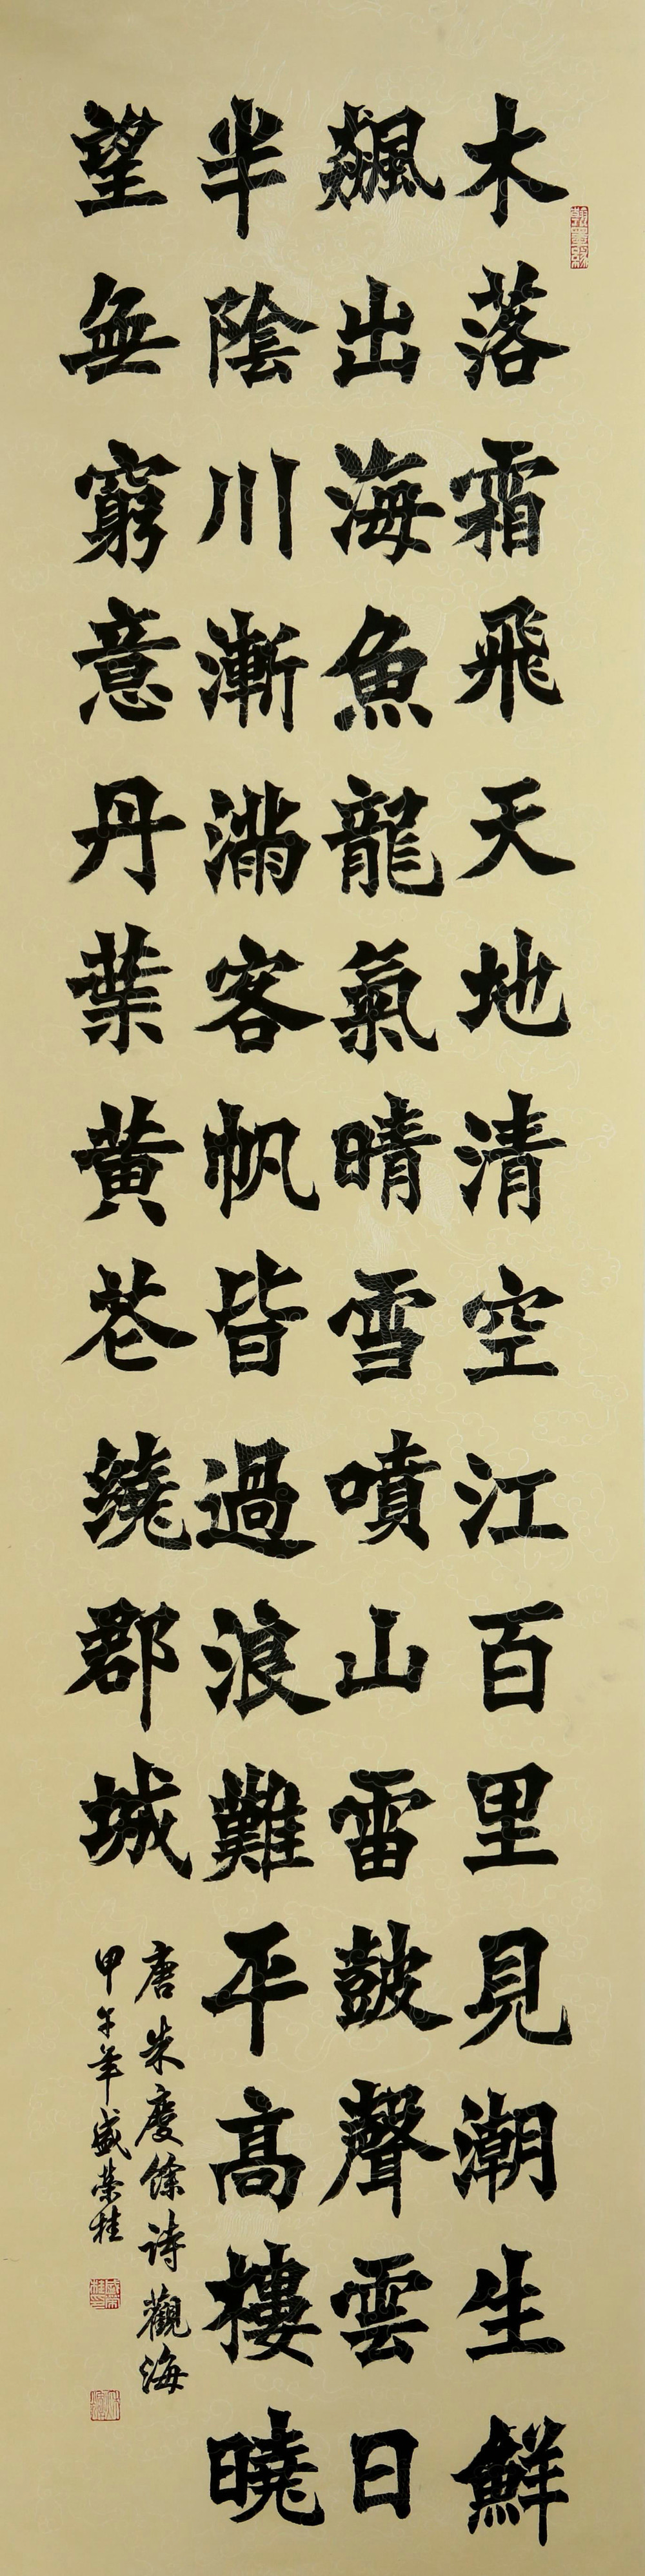 木落霜飛天地清空江百里見潮生鮮
飆出海魚龍氣晴雪噴山雷皷聲雲日
半陰川漸滿客帆皆過浪難平高樓曉
望無窮意丹葉黃花繞郡城
唐朱慶餘詩觀海
甲午年盛荣桂